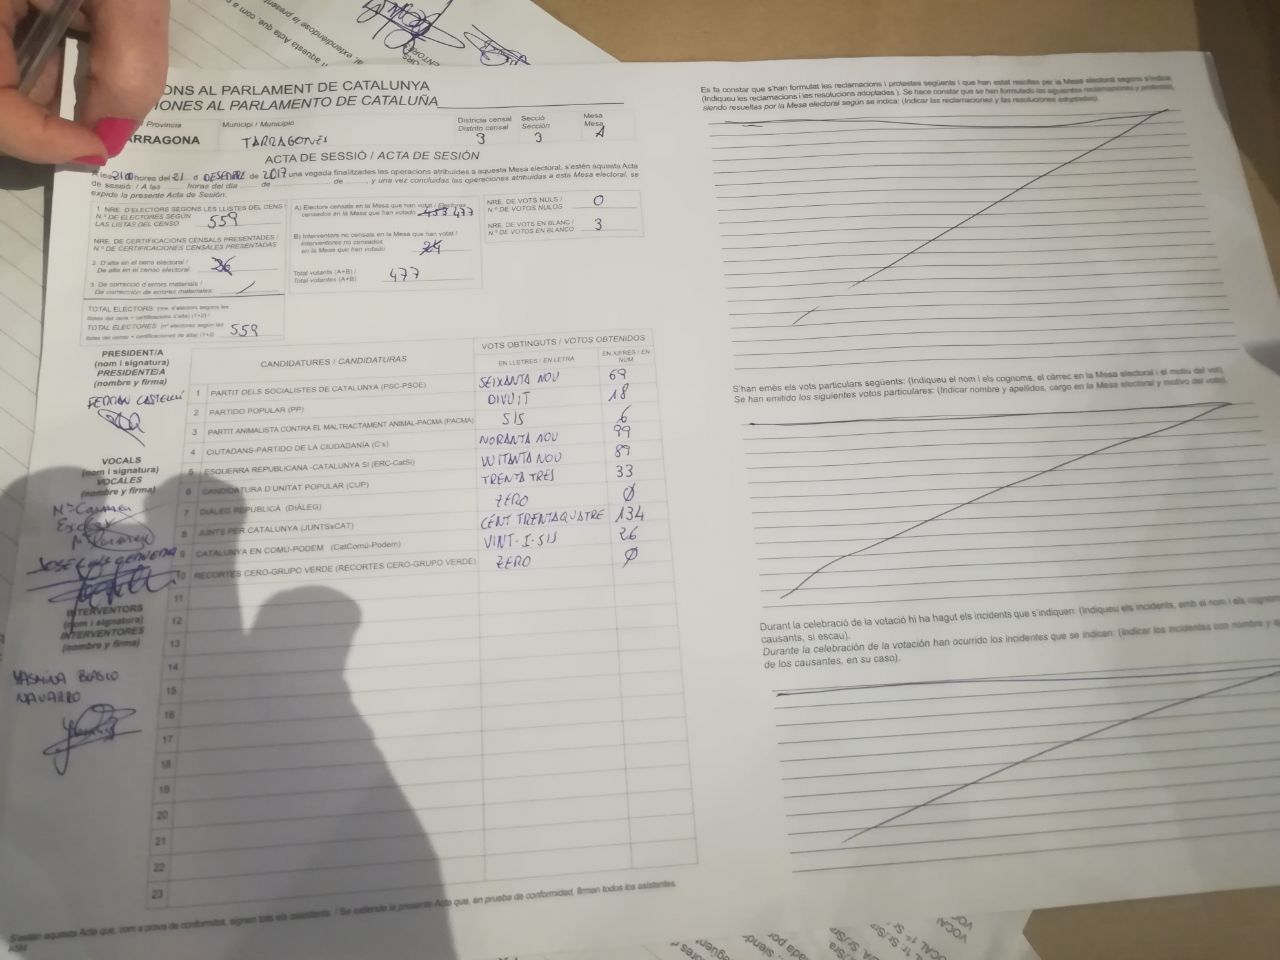 ONS AL PARLAMENT DE CATALUNYA
IONES AL PARLAMENTO DE CATALUÑA
Provincia
Municipi / Municipio
Districte censal
Distrito censal
Secció
Sección
Mesa
Mesa
ARRAGONA
TARRAGONÈS
3
3
A
ACTA DE SESSIÓ / ACTA DE SESIÓN
hores del 21 d DESEMBRE de 2017 una vegada finalitzades les operacions atribuïdes a aquesta Mesa electoral, s'estén aquesta Acta
de sessió. / A las horas del día de de , y una vez concluidas las operaciones atribuidas a esta Mesa electoral, se
expide la presente Acta de Sesión.
1. NRE. D'ELECTORS SEGONS LES LLISTES DEL CENS /
N.º DE ELECTORES SEGÚN
LAS LISTAS DEL CENSO
559
NRE. DE CERTIFICACIONS CENSALS PRESENTADES /
N.º DE CERTIFICACIONES CENSALES PRESENTADAS
2. D'alta en el cens electoral /
De alta en el censo electoral
3. De correcció d'errors materials /
De corrección de errores materiales
TOTAL ELECTORS: (nre. d'electors segons les
llistes del cens + certificacions d'alta) (1+2) /
TOTAL ELECTORES: (nº electores según las
listas del censo + certificaciones de alta) (1+2)
559
A) Electors censats en la Mesa que han votat / Electores
censados en la Mesa que han votado 453 477
B) Interventors no censats en la Mesa que han votat /
Interventores no censados
en la Mesa que han votado 24
Total votants (A+B) /
Total votantes (A+B)
477
NRE. DE VOTS NULS /
N.º DE VOTOS NULOS
0
NRE. DE VOTS EN BLANC /
N.º DE VOTOS EN BLANCO
3
PRESIDENT/A
(nom i signatura)
PRESIDENTE/A
(nombre y firma)
VOCALS
(nom i signatura)
VOCALES
(nombre y firma)
Mª Carmen
INTERVENTORS
(nom i signatura)
INTERVENTORES
(nombre y firma)
NAVARRO
CANDIDATURES / CANDIDATURAS
VOTS OBTINGUTS / VOTOS OBTENIDOS
EN LLETRES / EN LETRA
EN XIFRES / EN NÚM.
1 PARTIT DELS SOCIALISTES DE CATALUNYA (PSC-PSOE) SEIXANTA NOU 69
2 PARTIDO POPULAR (PP) DIVUIT 18
3 PARTIT ANIMALISTA CONTRA EL MALTRACTAMENT ANIMAL-PACMA (PACMA) SIS 6
4 CIUTADANS-PARTIDO DE LA CIUDADANÍA (C's) NORANTA NOU 99
5 ESQUERRA REPUBLICANA -CATALUNYA SÍ (ERC-CatSí) VUITANTA NOU 89
6 CANDIDATURA D'UNITAT POPULAR (CUP) TRENTA TRES 33
7 DIÀLEG REPUBLICÀ (DIÀLEG) ZERO 0
8 JUNTS PER CATALUNYA (JUNTSxCAT) CENT TRENTAQUATRE 134
9 CATALUNYA EN COMÚ-PODEM (CatComú-Podem) VINT-I-SIS 26
10 RECORTES CERO-GRUPO VERDE (RECORTES CERO-GRUPO VERDE) ZERO 0
11
12
13
14
15
16
17
18
19
20
21
22
23
S'estén aquesta Acta que, com a prova de conformitat, signen tots els assistents. / Se extiende la presente Acta que, en prueba de conformidad, firman todos los asistentes.
Es fa constar que s'han formulat les reclamacions i protestes següents i que han estat resoltes per la Mesa electoral segons s'indica:
(Indiqueu les reclamacions i les resolucions adoptades). Se hace constar que se han formulado las siguientes reclamaciones y protestas,
siendo resueltas por la Mesa electoral según se indica: (Indicar las reclamaciones y las resoluciones adoptadas).
S'han emès els vots particulars següents: (Indiqueu el nom i els cognoms, el càrrec en la Mesa electoral i el motiu del vot).
Se han emitido los siguientes votos particulares: (Indicar nombre y apellidos, cargo en la Mesa electoral y motivo del voto).
Durant la celebració de la votació hi ha hagut els incidents que s'indiquen: (Indiqueu els incidents, amb el nom i els
causants, si escau).
Durante la celebración de la votación han ocurrido los incidentes que se indican: (Indicar los incidentes con nombre y
de los causantes, en su caso).